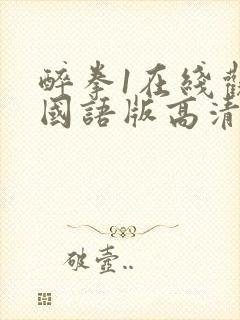 醉拳1在綫觀
國語版高清
破壺..